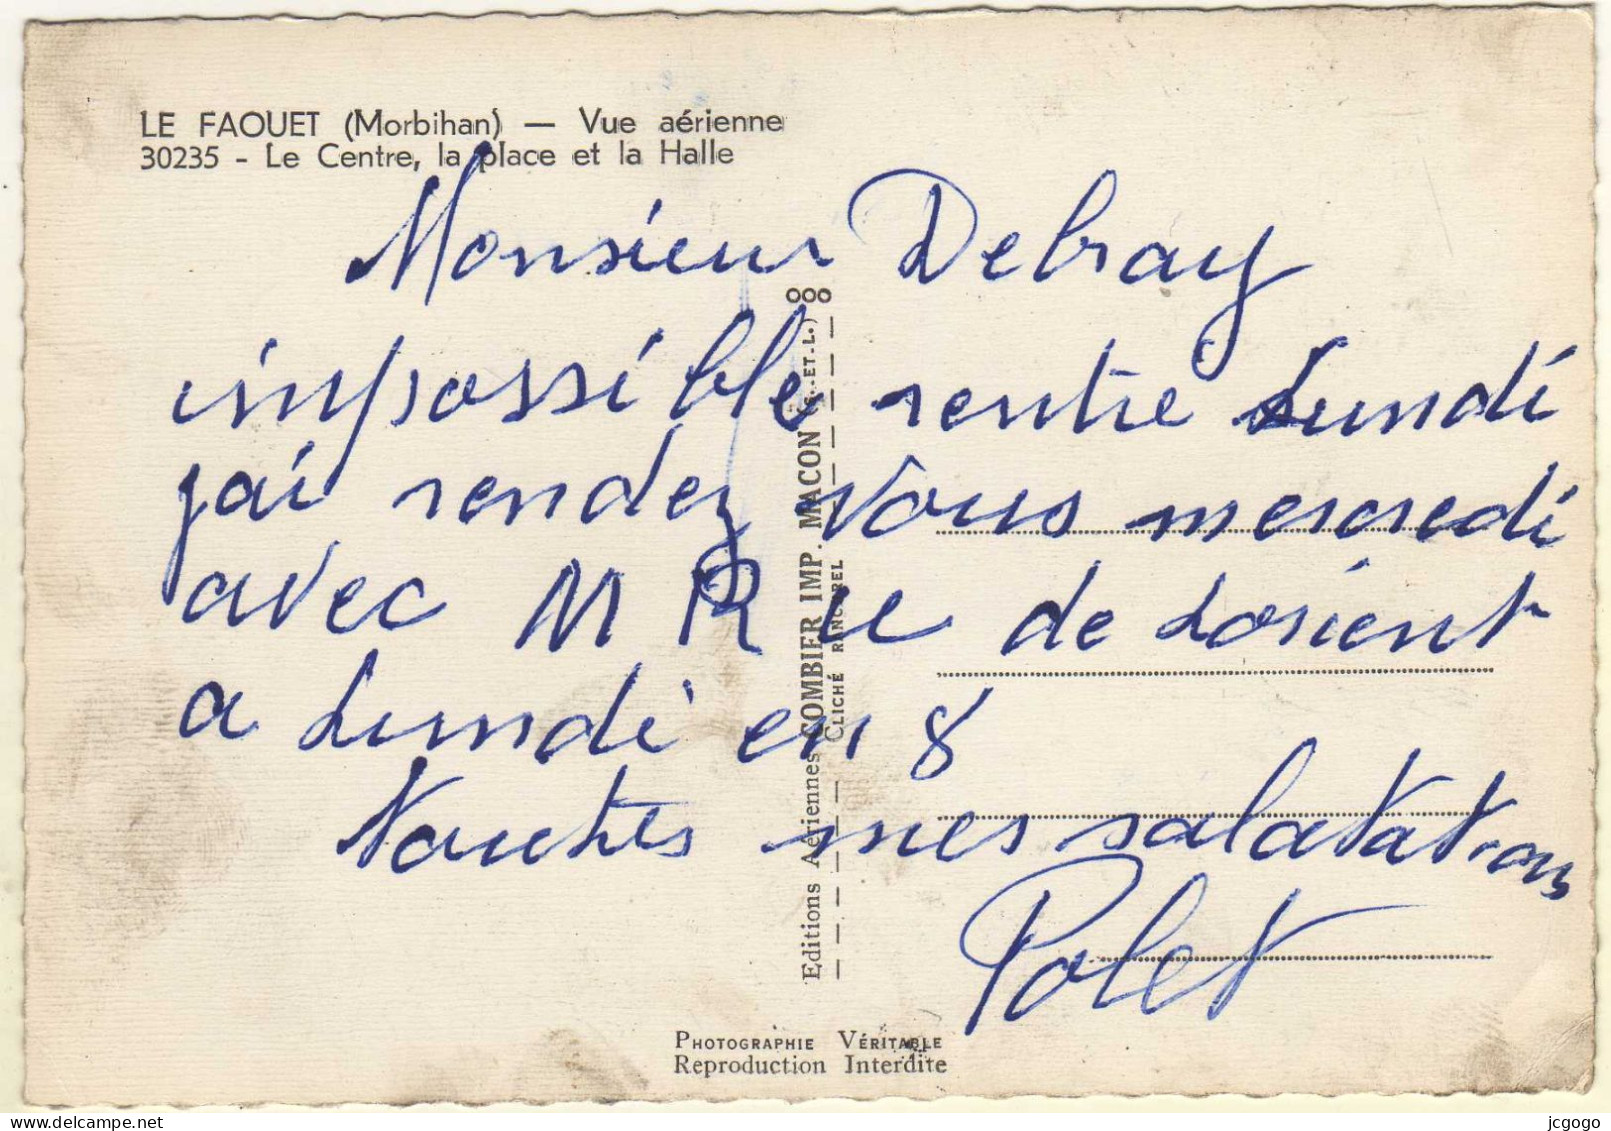 LE FAOUET (Morbihan) — Vue aérienne
30235 - Le Centre, la place et la Halle
Monsieur Debray
impossible rentre Lundi
jai rendez vous mercredi
avec M R de Lorient
a Lundi en 8
Toutes mes salatations
Polet
Editions Aériennes COMBIER IMP. MACON (S.-ET-L.)
CLICHÉ RANCUREL
PHOTOGRAPHIE VÉRITABLE
Reproduction Interdite
delcampe.net
jcgogo